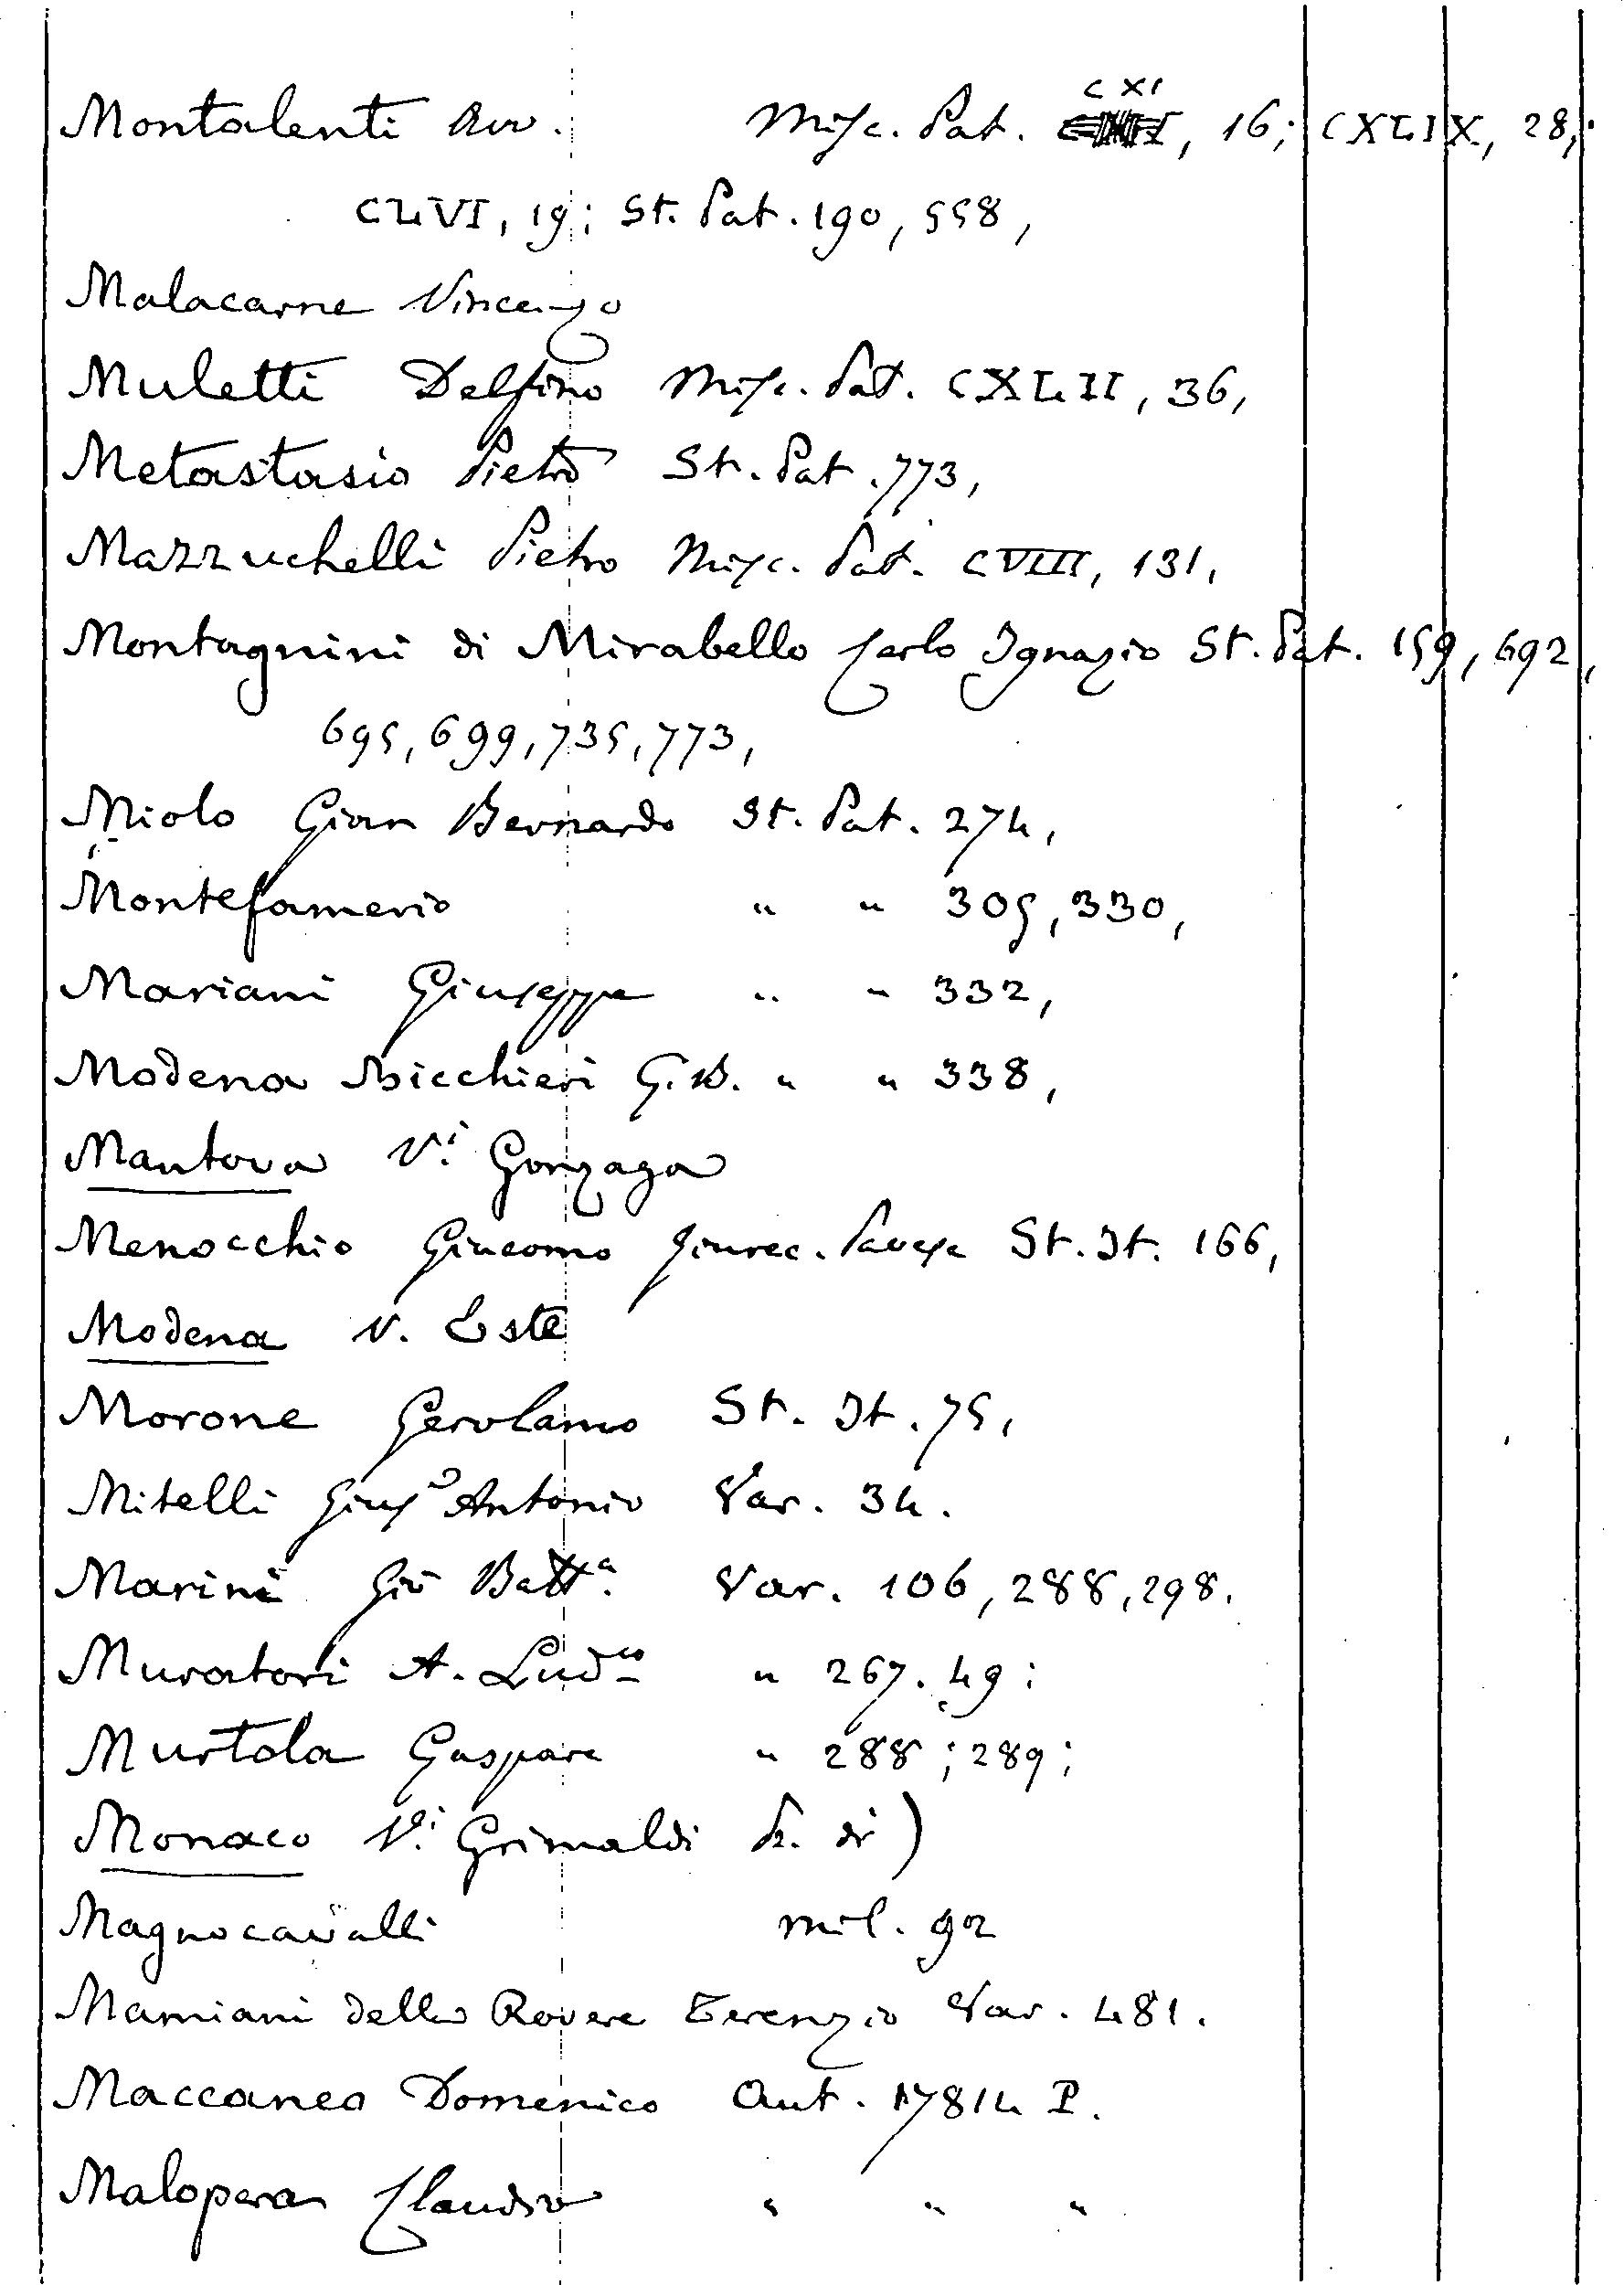 Montalenti Avv. Misc. Pat. CXI, 16; CXLIX, 28;
CLVI, 19; St. Pat. 190, 558,
Malacarne Vincenzo
Muletti Delfino Misc. Pat. CXLII, 36,
Metastasio Pietro St. Pat. 773,
Mazzuchelli Pietro Misc. Pat. CVIII, 131,
Montagnini di Mirabello Carlo Ignazio St. Pat. 159, 692,
695, 699, 735, 773,
Miolo Gian Bernardo St. Pat. 274,
Montefamerio " " 305, 330,
Mariani Giuseppe " " 332,
Modena Bicchieri G. B. " " 338,
Mantova Vi Gonzaga
Menocchio Giacomo Giurec. Pavese St. It. 166,
Modena V. Este
Morone Gerolamo St. It. 75,
Mitelli Giuse Antonio Var. 34.
Marini Gio Batta. Var. 106, 288, 298.
Muratori A. Ludco " 267. 49;
Murtola Gaspare " 288; 289;
Monaco Vi Grimaldi P. di)
Magnocavalli Mil. 92
Mamiani della Rovere Terenzio Var. 481.
Maccaneo Domenico Aut. 17814 P.
Malopera Claudio " " "